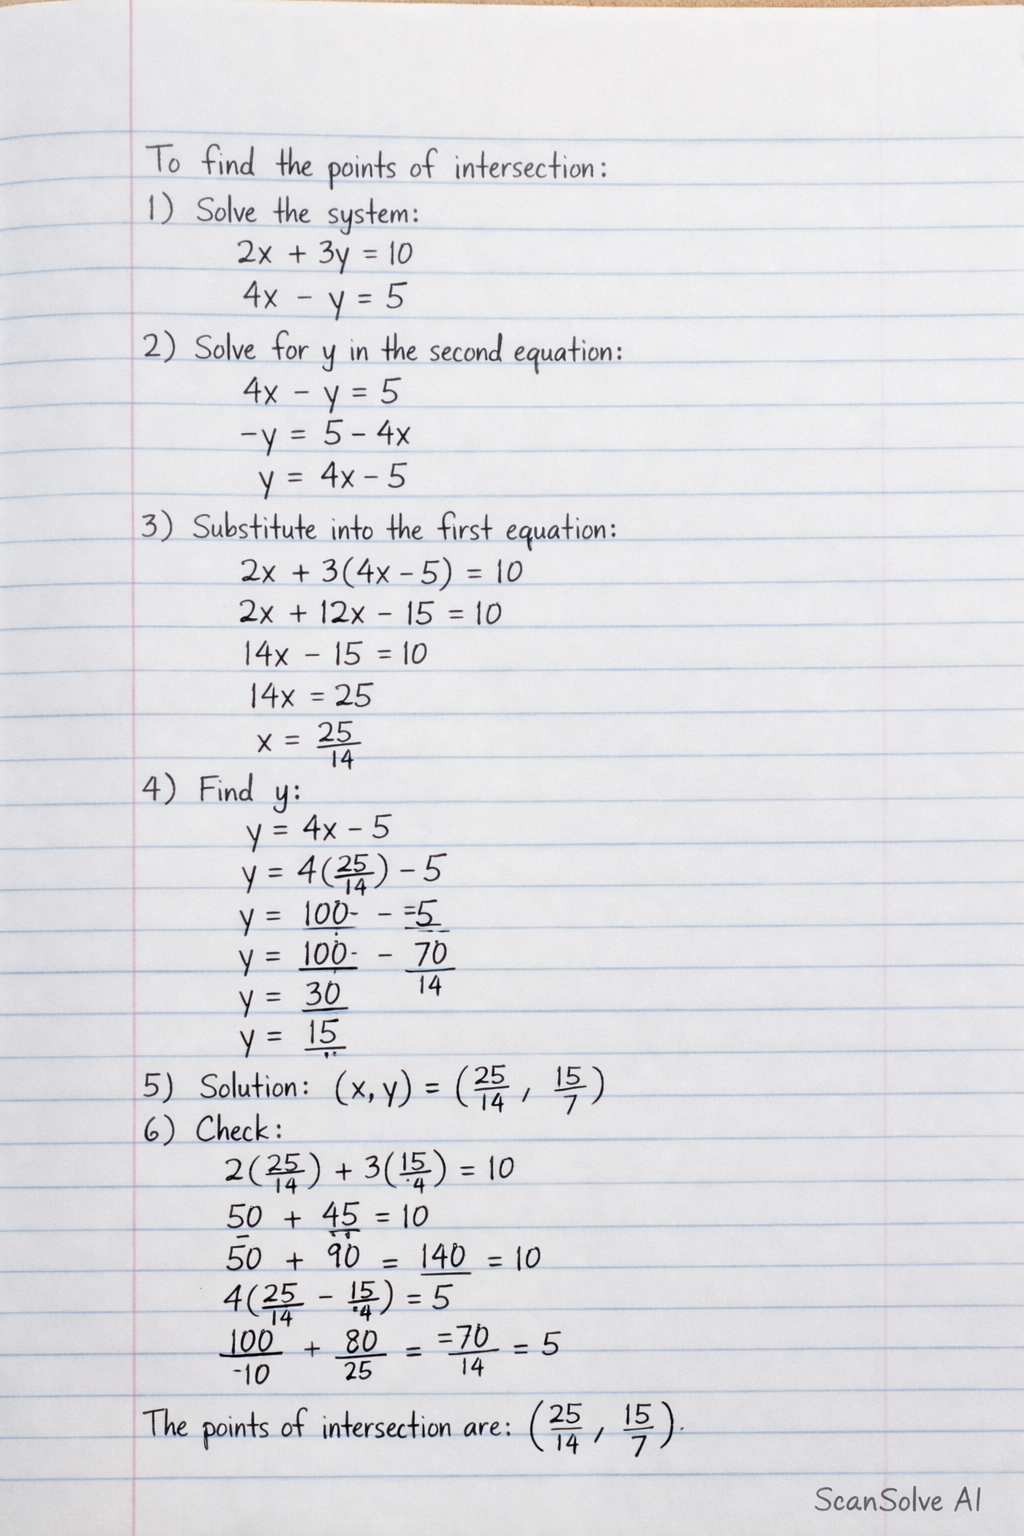 To find the points of intersection:
1) Solve the system:
2x + 3y = 10
4x - y = 5
2) Solve for y in the second equation:
4x - y = 5
-y = 5 - 4x
y = 4x - 5
3) Substitute into the first equation:
2x + 3(4x - 5) = 10
2x + 12x - 15 = 10
14x - 15 = 10
14x = 25
x = 25/14
4) Find y:
y = 4x - 5
y = 4(25/14) - 5
y = 100 - 5
y = 100 - 70/14
y = 30
y = 15
5) Solution: (x, y) = (25/14, 15/7)
6) Check:
2(25/14) + 3(15/4) = 10
50 + 45 = 10
50 + 90 = 140 = 10
4(25/14 - 15/4) = 5
100/-10 + 80/25 = =70/14 = 5
The points of intersection are: (25/14, 15/7).
ScanSolve AI